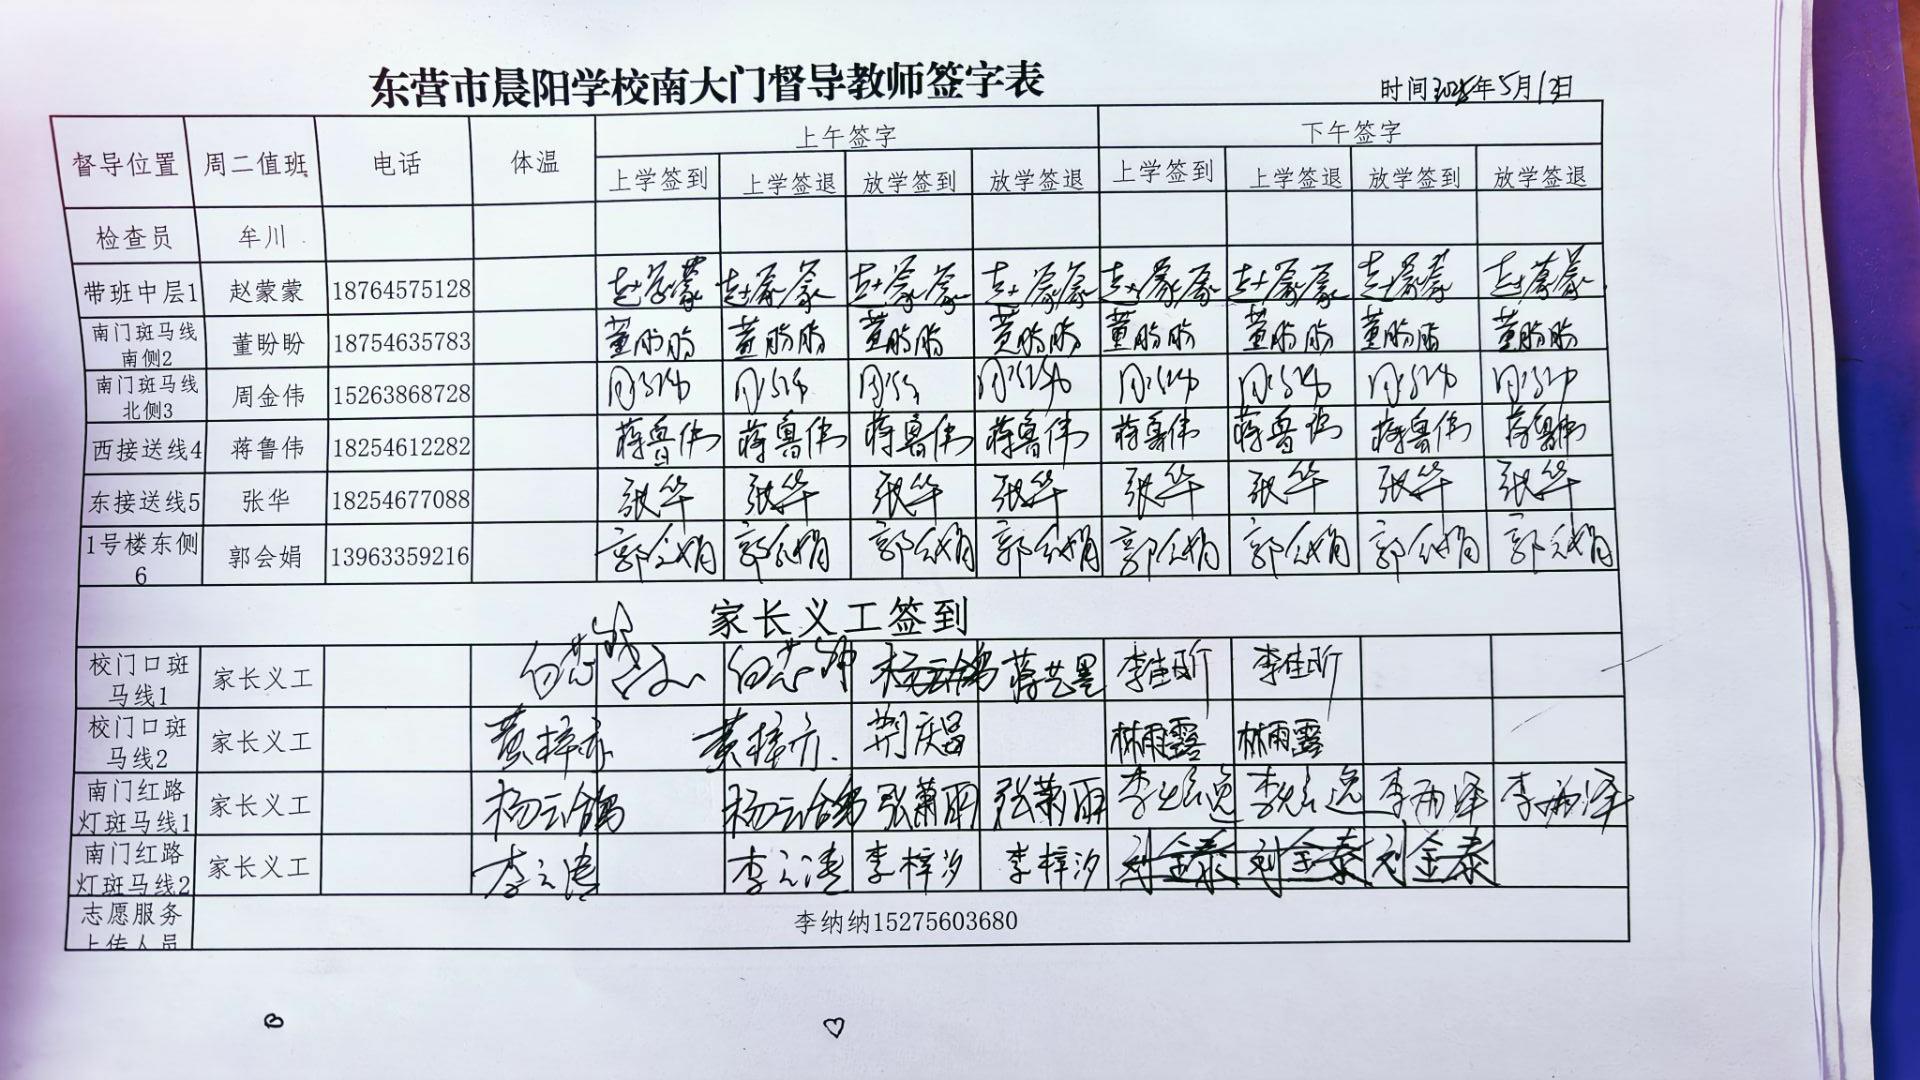 东营市晨阳学校南大门督导教师签字表
时间 年5月13日
督导位置 周二值班 电话 体温 上午签字 下午签字
上学签到 上学签退 放学签到 放学签退 上学签到 上学签退 放学签到 放学签退
检查员 牟川
带班中层1 赵蒙蒙 18764575128 赵蒙蒙 赵蒙蒙 赵蒙蒙 赵蒙蒙 赵蒙蒙 赵蒙蒙 赵蒙蒙 赵蒙蒙
南门斑马线
南侧2 董盼盼 18754635783 董盼盼 董盼盼 董盼盼 董盼盼 董盼盼 董盼盼 董盼盼 董盼盼
南门斑马线
北侧3 周金伟 15263868728 周金伟 周金伟 周金伟 周金伟 周金伟 周金伟 周金伟 周金伟
西接送线4 蒋鲁伟 18254612282 蒋鲁伟 蒋鲁伟 蒋鲁伟 蒋鲁伟 蒋鲁伟 蒋鲁伟 蒋鲁伟 蒋鲁伟
东接送线5 张华 18254677088 张华 张华 张华 张华 张华 张华 张华 张华
1号楼东侧
6 郭会娟 13963359216 郭会娟 郭会娟 郭会娟 郭会娟 郭会娟 郭会娟 郭会娟 郭会娟
家长义工签到
校门口斑
马线1 家长义工 蒋艺墨 李佳昕 李佳昕
校门口斑
马线2 家长义工 黄梓亦 黄梓亦 荆庆昌 林雨露 林雨露
南门红路
灯斑马线1 家长义工 杨云鸽 杨云鸽 张萧丽 张萧丽 李雨泽 李雨泽
南门红路
灯斑马线2 家长义工 李元涛 李元涛 李梓汐 李梓汐 刘金泰 刘金泰 刘金泰
志愿服务
上传人员 李纳纳15275603680